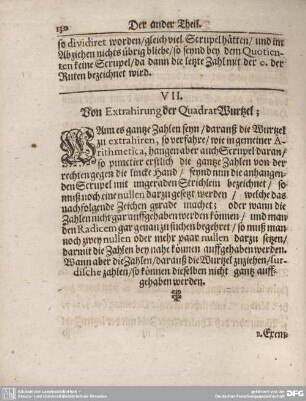 130 Der ander Theil.
so dividiret worden/ gleich viel Scrupel hätten/ und im
Abziehen nichts übrig bliebe/ so seynd bey dem Quotien-
ten keine Scrupel/ da dann die letzte Zahl mit der 0. der
Ruten bezeichnet wird.
VII.
Von Extrahirung der Quadrat Wurtzel;
Wann es gantze Zahlen seyn/ darauß die Wurtzel
zu extrahiren, so verfahre/ wie in gemeiner A-
rithmetica, hangen aber auch Scrupel daran/
so punctier erstlich die gantze Zahlen von der
rechten gegen die lincke Hand/ seynd nun die anhangen-
den Scrupel mit ungeraden Strichlein bezeichnet/ so
muß noch eine nullen darzu gesetzt werden/ welche das
nachfolgende Zeichen gerade machet; oder wann die
Zahlen nicht gar auffgehaben werden können/ und man
den Radicem gar genau zu suchen begehret/ so muß man
noch zwey nullen oder mehr paar nullen darzu setzen/
darmit die Zahlen bey nahe können auffgehaben werden.
Wann aber die Zahlen/ darauß die Wurtzel zuziehen/ sur-
dische zahlen/ so können dieselben nicht gantz auff-
gehaben werden.
2. Exem-